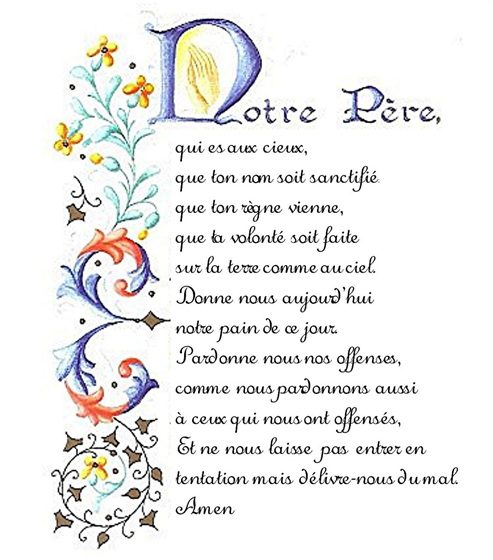 Notre Père,
qui es aux cieux,
que ton nom soit sanctifié
que ton règne vienne,
que ta volonté soit faite
sur la terre comme au ciel.
Donne nous aujourd'hui
notre pain de ce jour.
Pardonne nous nos offenses,
comme nous pardonnons aussi
à ceux qui nous ont offensés,
Et ne nous laisse pas entrer en
tentation mais délivre-nous du mal.
Amen